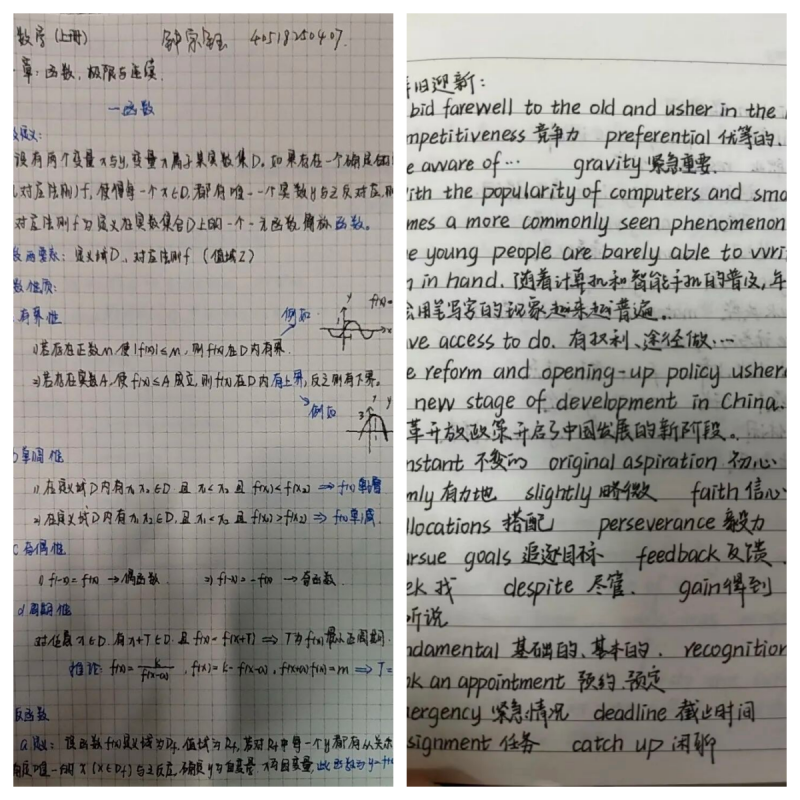 数学(上册) 40518250407.
章:函数、极限与连续.
一函数
定义:
设有两个变量x与y,变量x属于某实数集D。如果存在一个确定的
对应法则)f,使得每一个x∈D,都有唯一一个实数y与之对应,则
对应法则f为定义在实数集合D上的一个一元函数,简称函数。
数两要素:定义域D、对应法则f (值域Z)
数性质:
有界性 例如 f(x)=
1)若存在正数M,使|f(x)|≤M,则f(x)在D内有界.
2)若存在实数A,使f(x)≤A成立,则f(x)在D内有上界,反之则有下界。
例如
b单调性
1)在定义域D内有x₁x₂∈D,且x₁<x₂且f(x₁)<f(x₂) ⇒ f(x)单增
2)在定义域D内有x₁x₂∈D,且x₁<x₂且f(x₁)>f(x₂) ⇒ f(x)单减
c奇偶性
1) f(-x)=f(x) →偶函数. 2) f(-x)=-f(x) →奇函数.
d周期性
对任意x∈D,有x+T∈D,且f(x)=f(x+T) ⇒ T为f(x)最小正周期.
推论: f(x)=k/f(x-a), f(x)=k-f(x-a), f(x+a)f(x)=m ⇒ T=
反函数
a定义:设函数f(x)定义域为Df,值域为Rf,若对Rf中每一个y都有从关系
唯一的x(x∈Df)与之反应,确定y为自变量,x为因变量,此函数为y=f
旧迎新:
bid farewell to the old and usher in the
mpetitiveness 竞争力 preferential 优等的、
e aware of… gravity 紧急重要.
ith the popularity of computers and sma
mes a more commonly seen phenomenon
e young people are barely able to wri
n in hand. 随着计算机和智能手机的普及,年
会用笔写字的现象越来越普遍。
ve access to do. 有权利、途径做…
e reform and opening-up policy usher
new stage of development in China.
革开放政策开启了中国发展的新阶段。
nstant 不变的 original aspiration 初心
mly 有力地 slightly 略微 faith 信心
llocations 搭配 perseverance 毅力
ursue goals 追逐目标 feedback 反馈
ek 找 despite 尽管. gain得到
听说
ndamental 基础的、基本的. recognition
ok an appointment 预约、预定
ergency 紧急情况 deadline 截止时间
signment 任务 catch up 闲聊